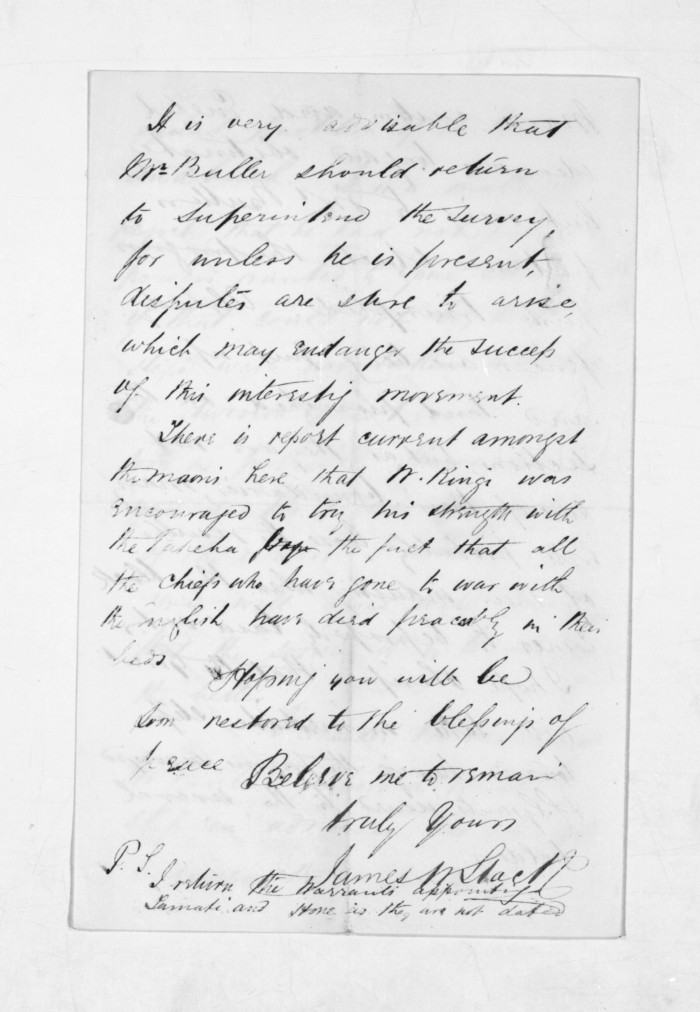 It is very advisable that
Mr Buller should return
to superintend the survey,
for unless he is present,
disputes are sure to arise,
which may endanger the success
of this interestig movement.
There is report current amongst
the maoris here that W. Kingi was
encouraged to try his strength with
the Pakeha from the fact that all
the chiefs who have gone to war with
the English have died peacably in their
beds
Hoping you will be
soon restored to the blessings of
peace Believe me to remain
truly Yours
James W Stack
P.S.
I return the Warrants appointing
and Hone as they are not dated